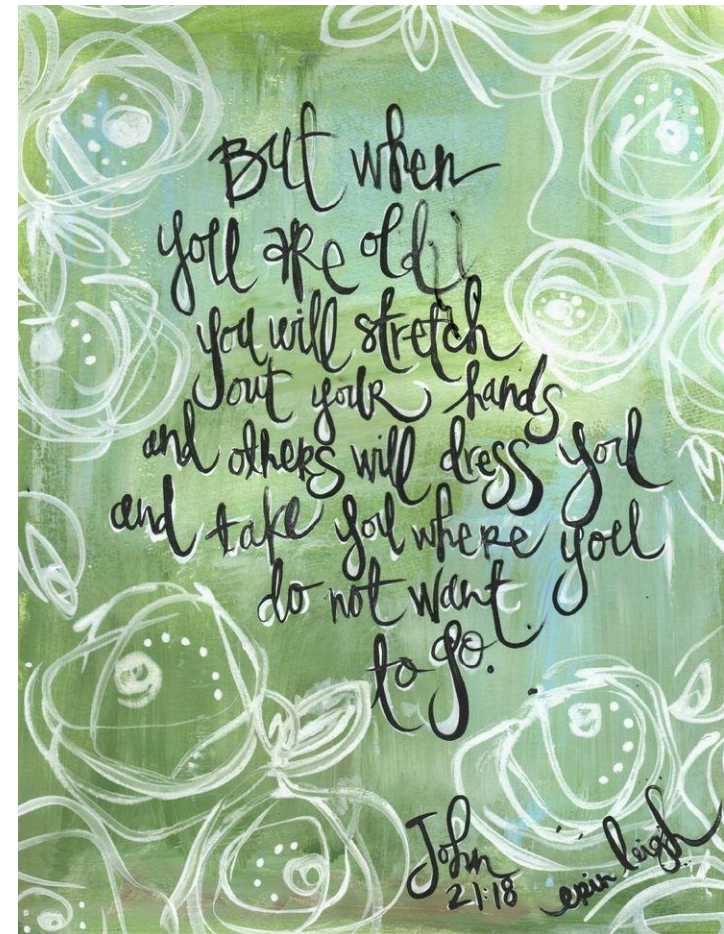 But when
you are old
you will stretch
out your hands
and others will dress you
and take you where you
do not want
to go.
John
21:18
erin leigh